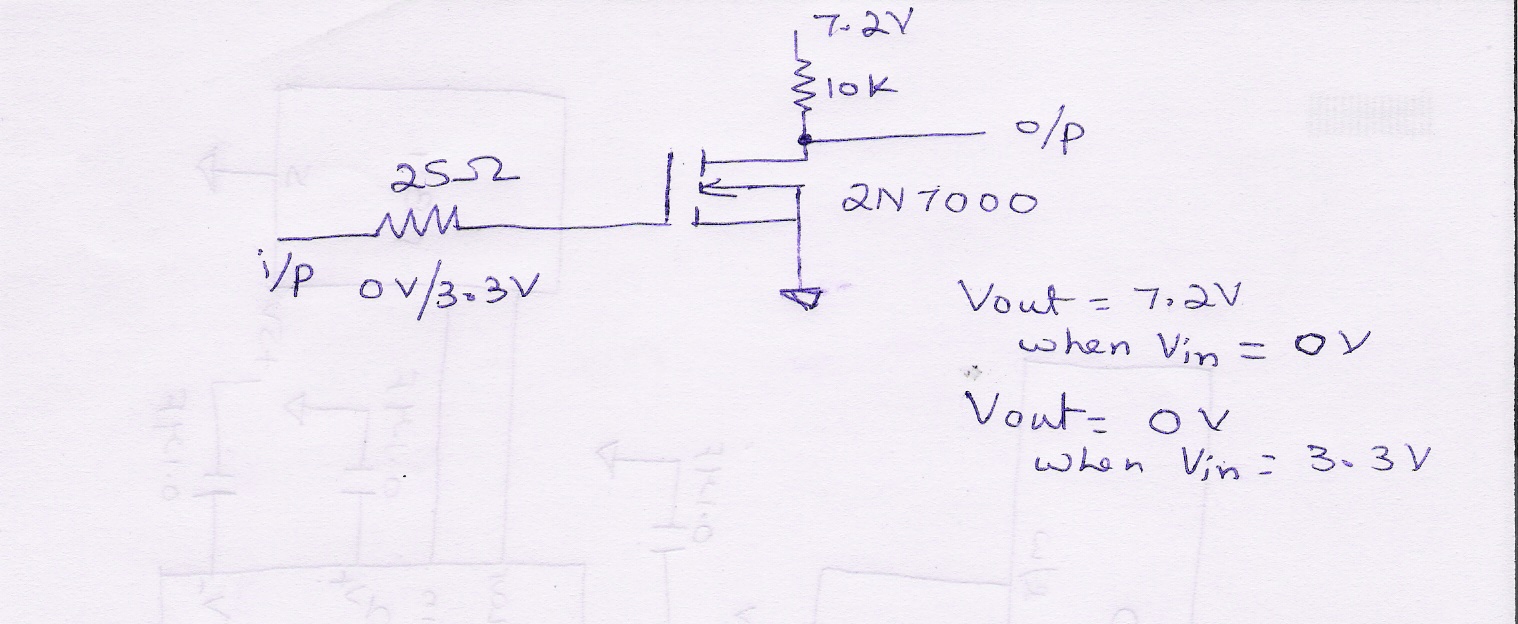 7.2V
10K
o/p
25Ω
2N7000
i/p 0V/3.3V
Vout = 7.2V
when Vin = 0V
Vout = 0V
when Vin = 3.3V